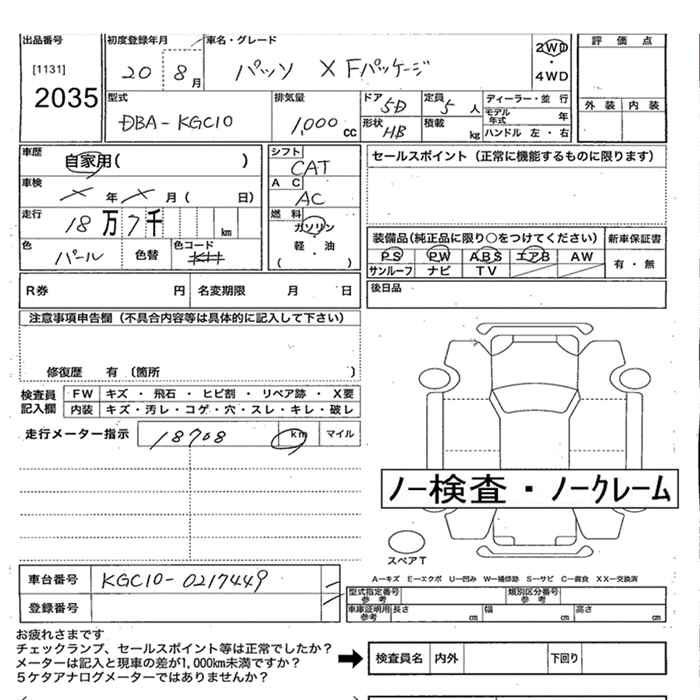 出品番号 初度登録年月 車名・グレード 評価点
[1131] 20 8月 パッソ X Fパッケージ 2WD
・
4WD
2035 外装 内装
型式 排気量 ドア 5D 定員 5人 ディーラー・並行
DBA-KGC10 1,000cc 形状 HB 積載 kg モデル年式 年
ハンドル 左・右
車歴 自家用( ) シフト CAT セールスポイント(正常に機能するものに限ります)
車検 年 月( 日) AC AC
走行 18万7千 km 燃料 ガソリン
軽・油
( )
色 パール 色替 色コード
装備品(純正品に限り○をつけてください) 新車保証書
PS PW ABS エアB AW 有・無
サンルーフ ナビ TV
R券 円 名変期限 月 日 後日品
注意事項申告欄(不具合内容等は具体的に記入して下さい)
修復歴 有(箇所 )
検査員記入欄 FW キズ・飛石・ヒビ割・リペア跡・X要
内装 キズ・汚レ・コゲ・穴・スレ・キレ・破レ
走行メーター指示 18708 km マイル
ノー検査・ノークレーム
スペアT
車台番号 KGC10-0217449
登録番号
A−キズ E−エクボ U−凹み W−補修跡 S−サビ C−腐食 XX−交換済
型式指定番号参考 類別区分番号参考
車庫証明用参考 長さ cm 幅 cm 高さ cm
お疲れさまです
チェックランプ、セールスポイント等は正常でしたか?
メーターは記入と現車の差が1,000km未満ですか?
5ケタアナログメーターではありませんか?
検査員名 内外 下回り